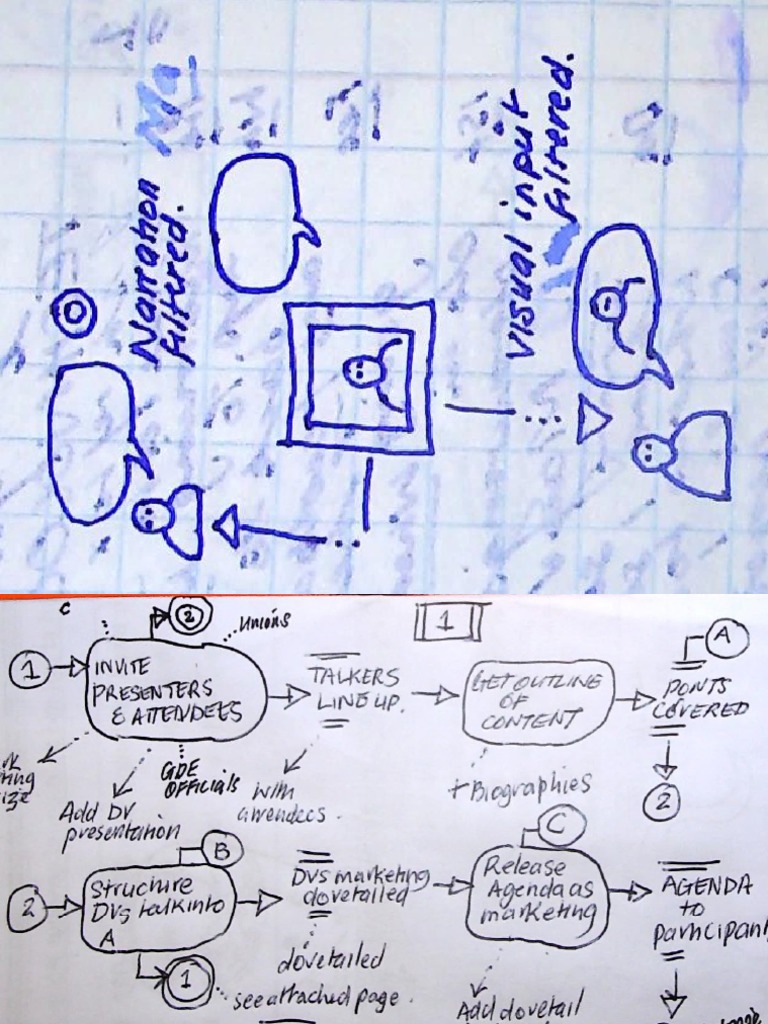 Narration
filtered.
Visual input
filtered.
1
C
2
Unions
1
INVITE
PRESENTERS
& ATTENDEES
TALKERS
LINE UP.
GET OUTLINE
OF
CONTENT
A
POINTS
COVERED
2
GDE
OFFICIALS
Add DV
presentation
with
attendees.
+ Biographies
2
Structure
DVs talk into
A
B
DVs marketing
dovetailed
C
Release
Agenda as
marketing
AGENDA
to
participant
1
dovetailed
see attached page.
Add dovetail